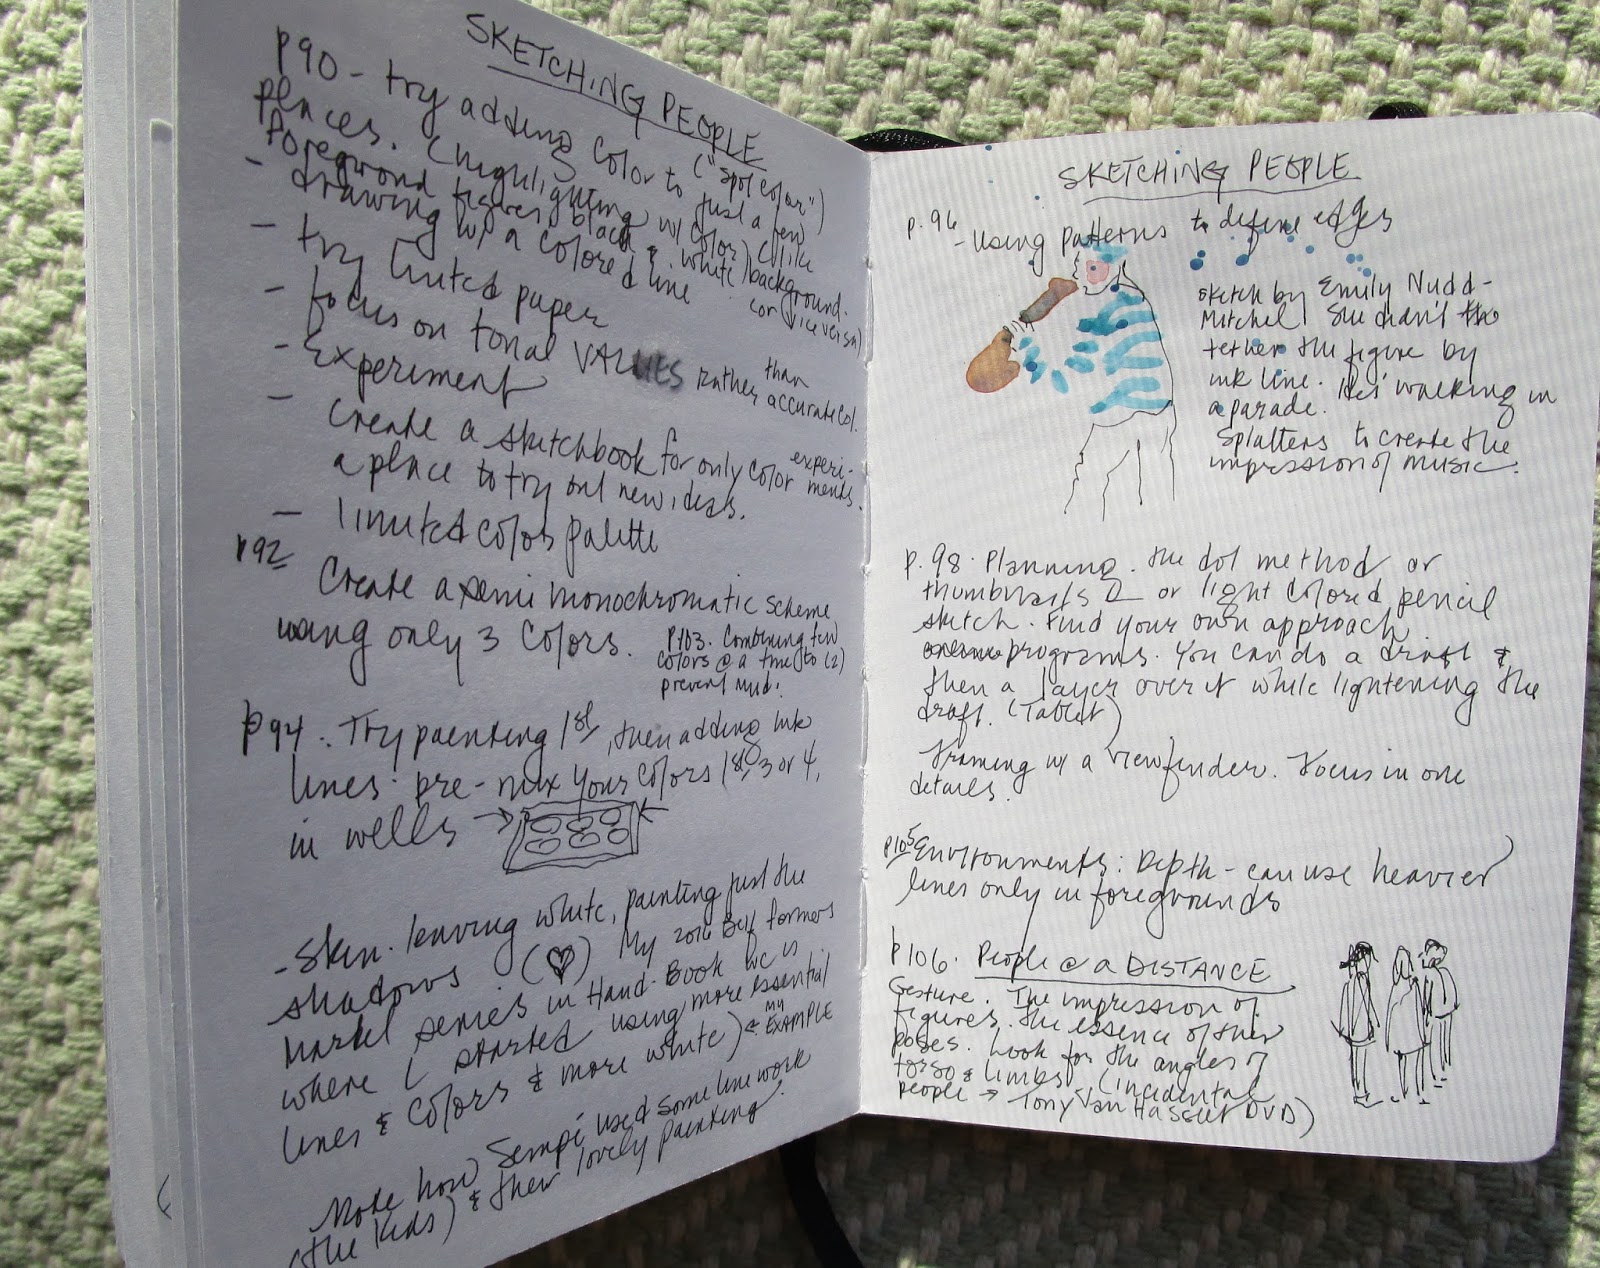 SKETCHING PEOPLE
p90 - try adding color to just a few
places. ("spot color")
(highlighting w/ color) (like
foreground figures black & white/background.
cor (vice versa)
- drawing w/ a colored line
- try tinted paper
- focus on tonal VALUES rather than
accurate col.
- Experiment
- create a sketchbook for only color experi-
ments.
a place to try out new ideas.
- limited color palette
p92
Create a semi monochromatic scheme
using only 3 colors.
p103. Combining few
colors @ a time to (2)
prevent mud!
p94. Try painting 1st, then adding ink
lines. pre-mix your colors 1st, 3 or 4,
in wells →
- Skin. leaving white, painting just the
shadows (♡) My 2016 Belf farmers
Market series in Hand. Book
where I started using more essential
lines & colors & more white) ← my EXAMPLE
Note how Sempé used some line work
(the kids) & then lovely painting.
SKETCHING PEOPLE
p. 96
- using patterns to define edges
sketch by Emily Nudd-
Mitchell She didn't
tether the figure by
ink line. He's walking in
a parade.
Splatters to create the
impression of music.
p. 98. Planning. the dot method or
thumbnails or light colored pencil
sketch. Find your own approach
programs. You can do a draft &
then a layer over it while lightening the
draft. (Tablet)
Framing w/ a viewfinder. Focus in one
details.
p105 Environments: Depth - can use heavier
lines only in foregrounds
p106. People @ a DISTANCE
Gesture. The impression of
figures. the essence of their
poses. Look for the angles of
torso & limbs. (incidental
people → Tony Van Hasselt DVD)